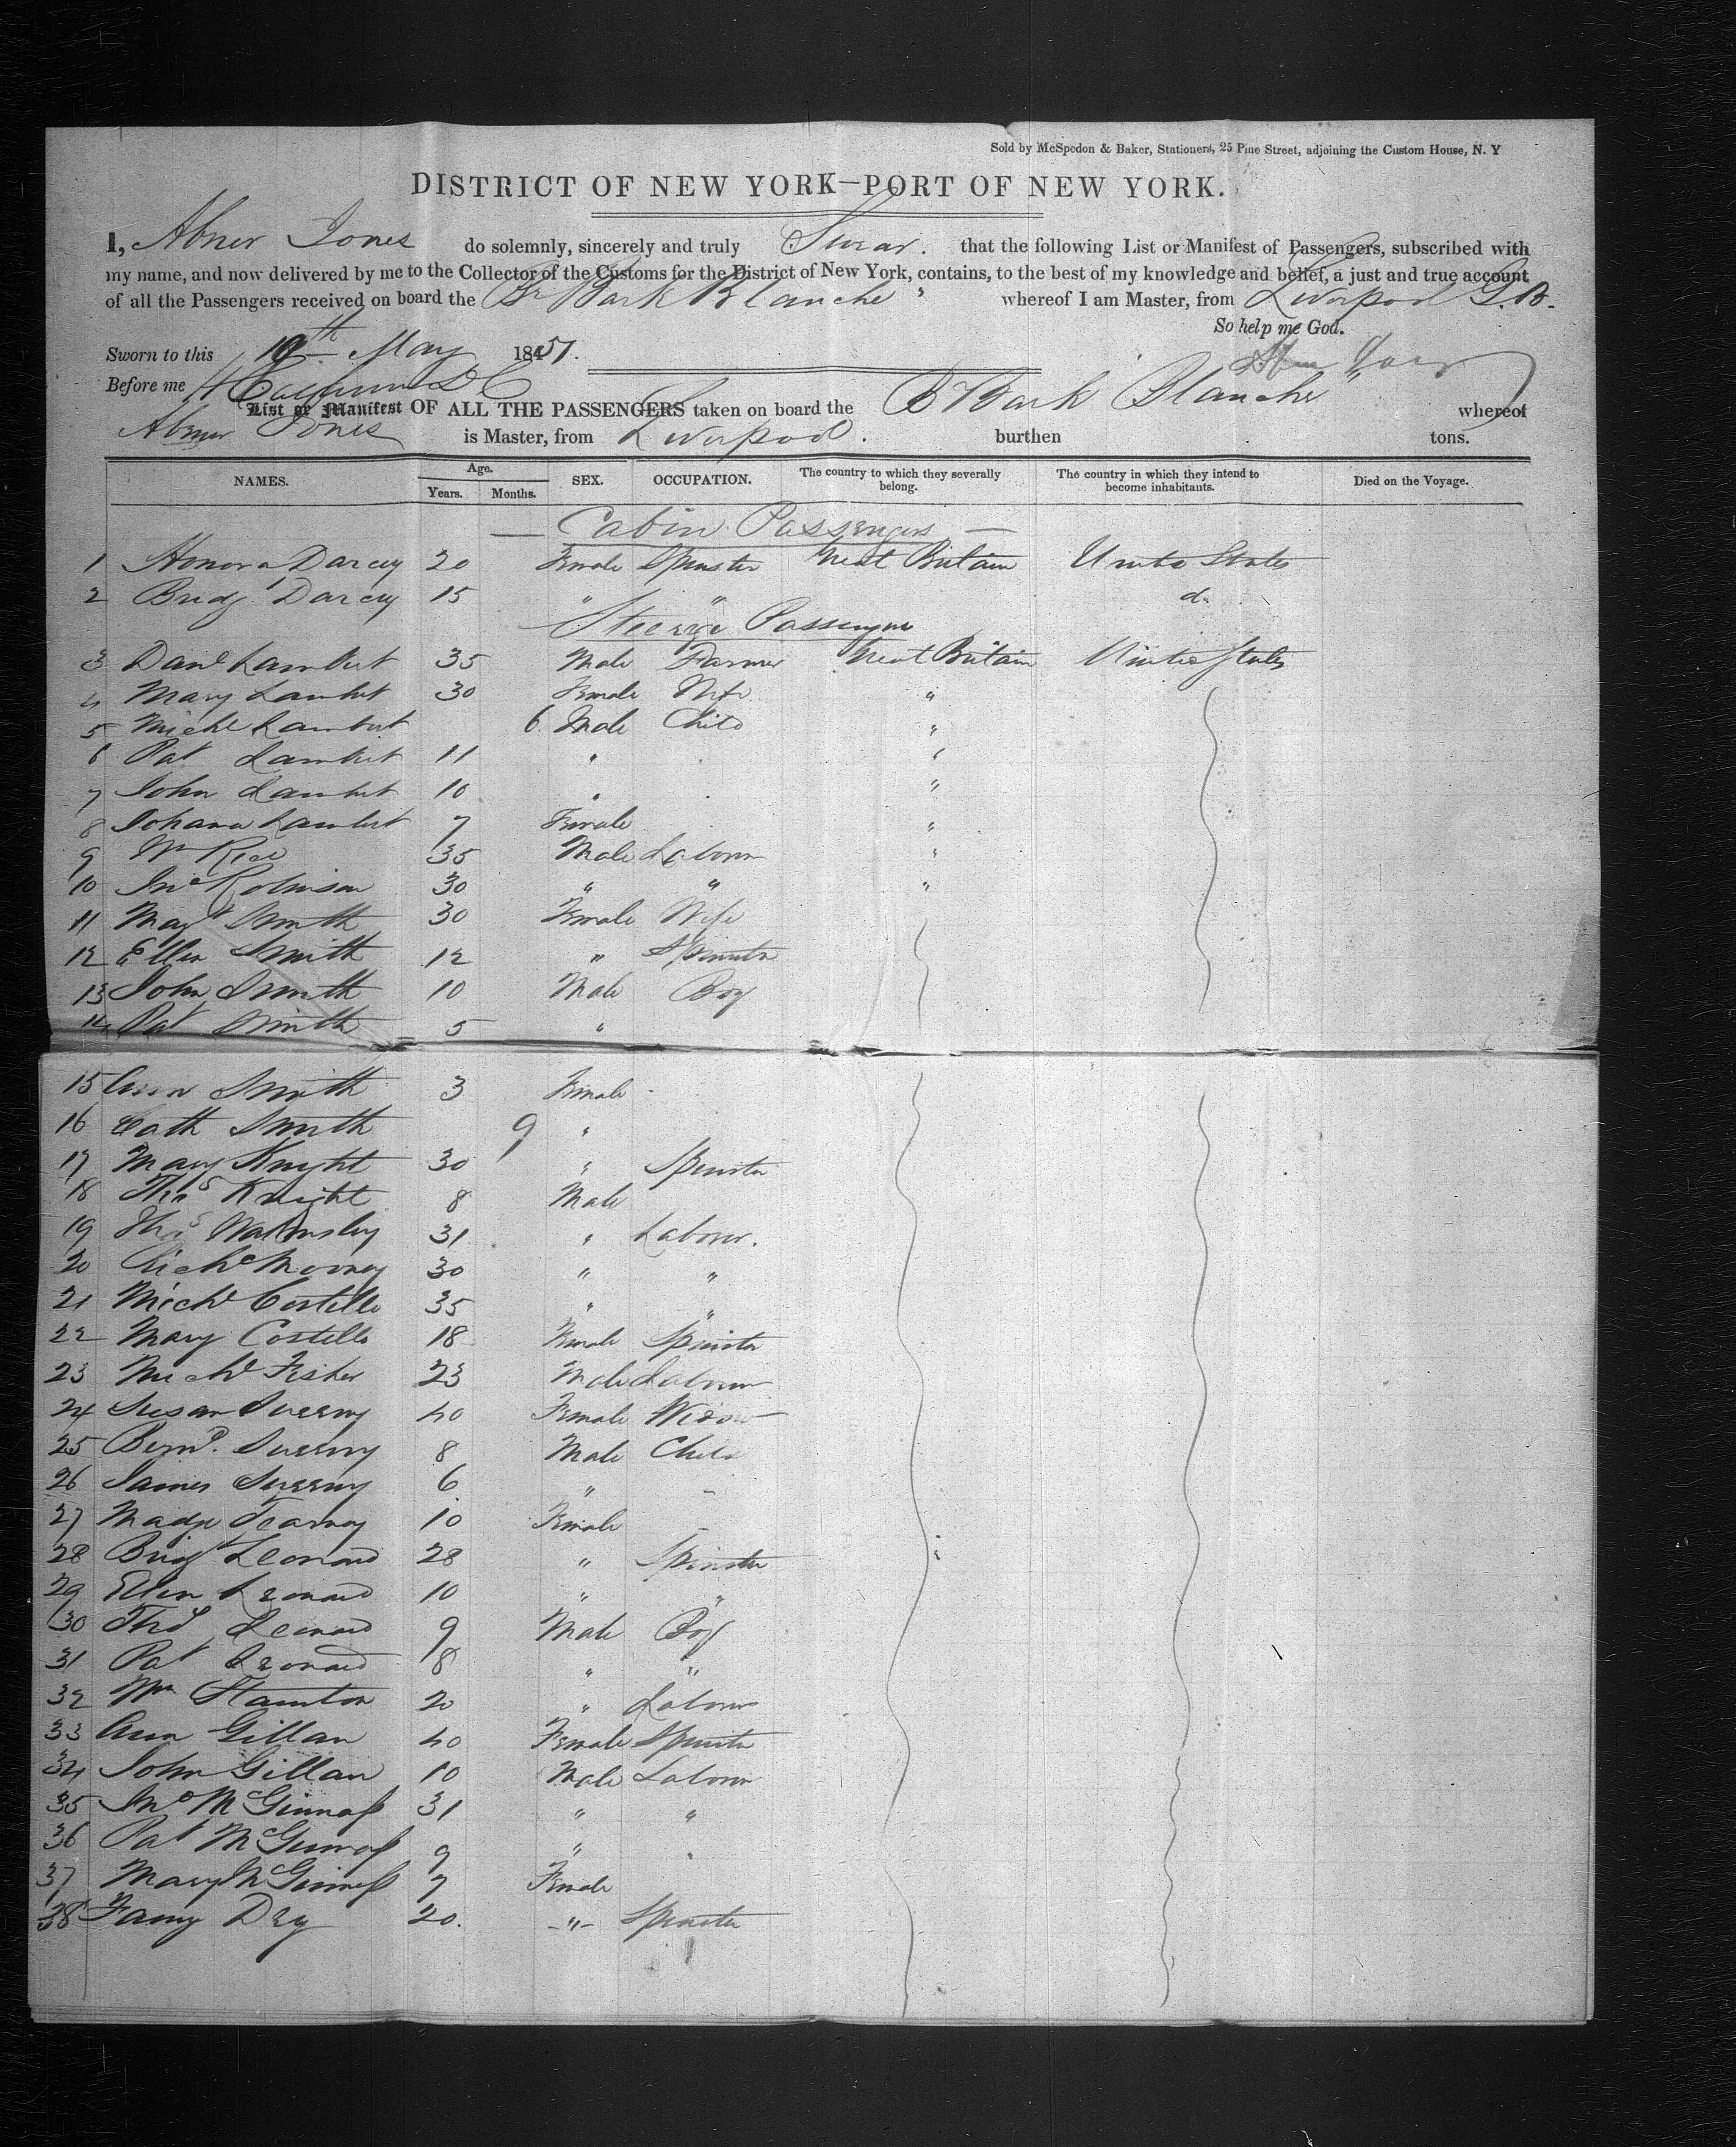 Sold by McSpedon & Baker, Stationers, 25 Pine Street, adjoining the Custom House, N. Y
DISTRICT OF NEW YORK—PORT OF NEW YORK.
I, Abner Jones do solemnly, sincerely and truly Swear. that the following List or Manifest of Passengers, subscribed with
my name, and now delivered by me to the Collector of the Customs for the District of New York, contains, to the best of my knowledge and belief, a just and true account
of all the Passengers received on board the Br Bark Blanche " whereof I am Master, from Liverpool G.B.
So help me God.
Sworn to this 19th May 1851.
Before me
List or Manifest OF ALL THE PASSENGERS taken on board the Br Bark Blanche " whereof
Abner Jones is Master, from Liverpool. burthen tons.
NAMES. Age. Years. Months. SEX. OCCUPATION. The country to which they severally belong. The country in which they intend to become inhabitants. Died on the Voyage.
— Cabin Passengers —
1 Honora Darcey 20 Female Spinster Great Britain United States
2 Bridgt Darcey 15 " " do
Steerage Passengers
3 Danl Lambert 35 Male Farmer Great Britain United States
4 Mary Lambert 30 Female Wife "
5 Michl Lambert 6 Male Child "
6 Pat Lambert 11 " "
7 John Lambert 10 " "
8 Johana Lambert 7 Female "
9 Wm Rice 35 Male Laborer "
10 Jno Robinson 30 " " "
11 Magt Smith 30 Female Wife
12 Ellen Smith 12 " Spinster
13 John Smith 10 Male Boy
14 Pat Smith 5 "
15 Ann Smith 3 Female
16 Cath Smith 9 "
17 Mary Knight 30 " Spinster
18 Thos Knight 8 Male
19 Thos Walmsley 31 " Laborer.
20 Richd Mooney 30 " "
21 Michl Costello 35 " "
22 Mary Costello 18 Female Spinster
23 Michl Fisher 23 Male Laborer
24 Susan Sweeny 40 Female Widow
25 Bernd. Sweeny 8 Male Child
26 James Sweeny 6 " -
27 Madge 10 Female -
28 Bridgt Leonard 28 " Spinster
29 Ellen Leonard 10 " "
30 Thos Leonard 9 Male Boy
31 Pat Leonard 8 " "
32 Wm Stanton 20 " Laborer
33 Ann Gillan 40 Female Spinster
34 John Gillan 10 Male Laborer
35 Jno McGinnass 31 " "
36 Pat McGinnass 9 "
37 Mary McGinnass 7 Female
38 Fanny Dey 20. -"- Spinster